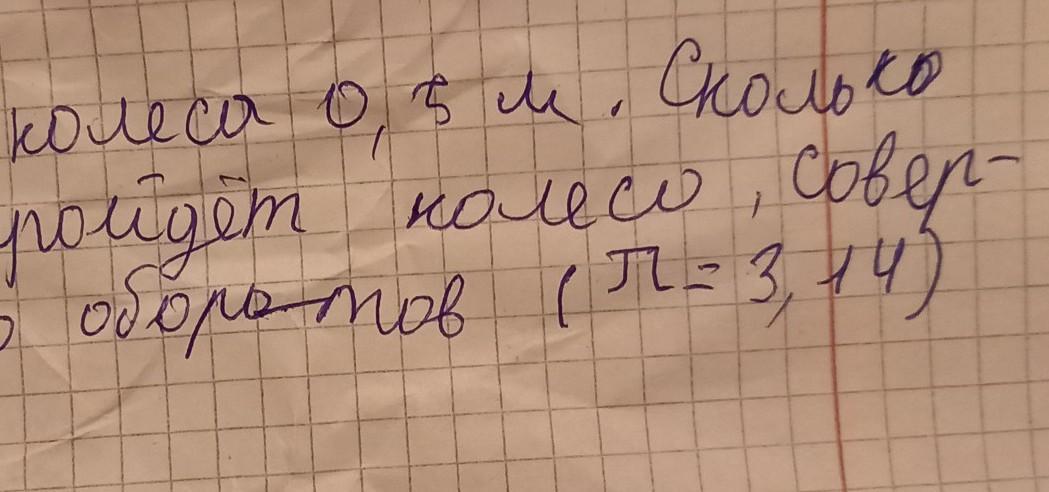 колеса 0,5 м. Сколько
ройдёт колесо, совер-
оборотов (π = 3,14)